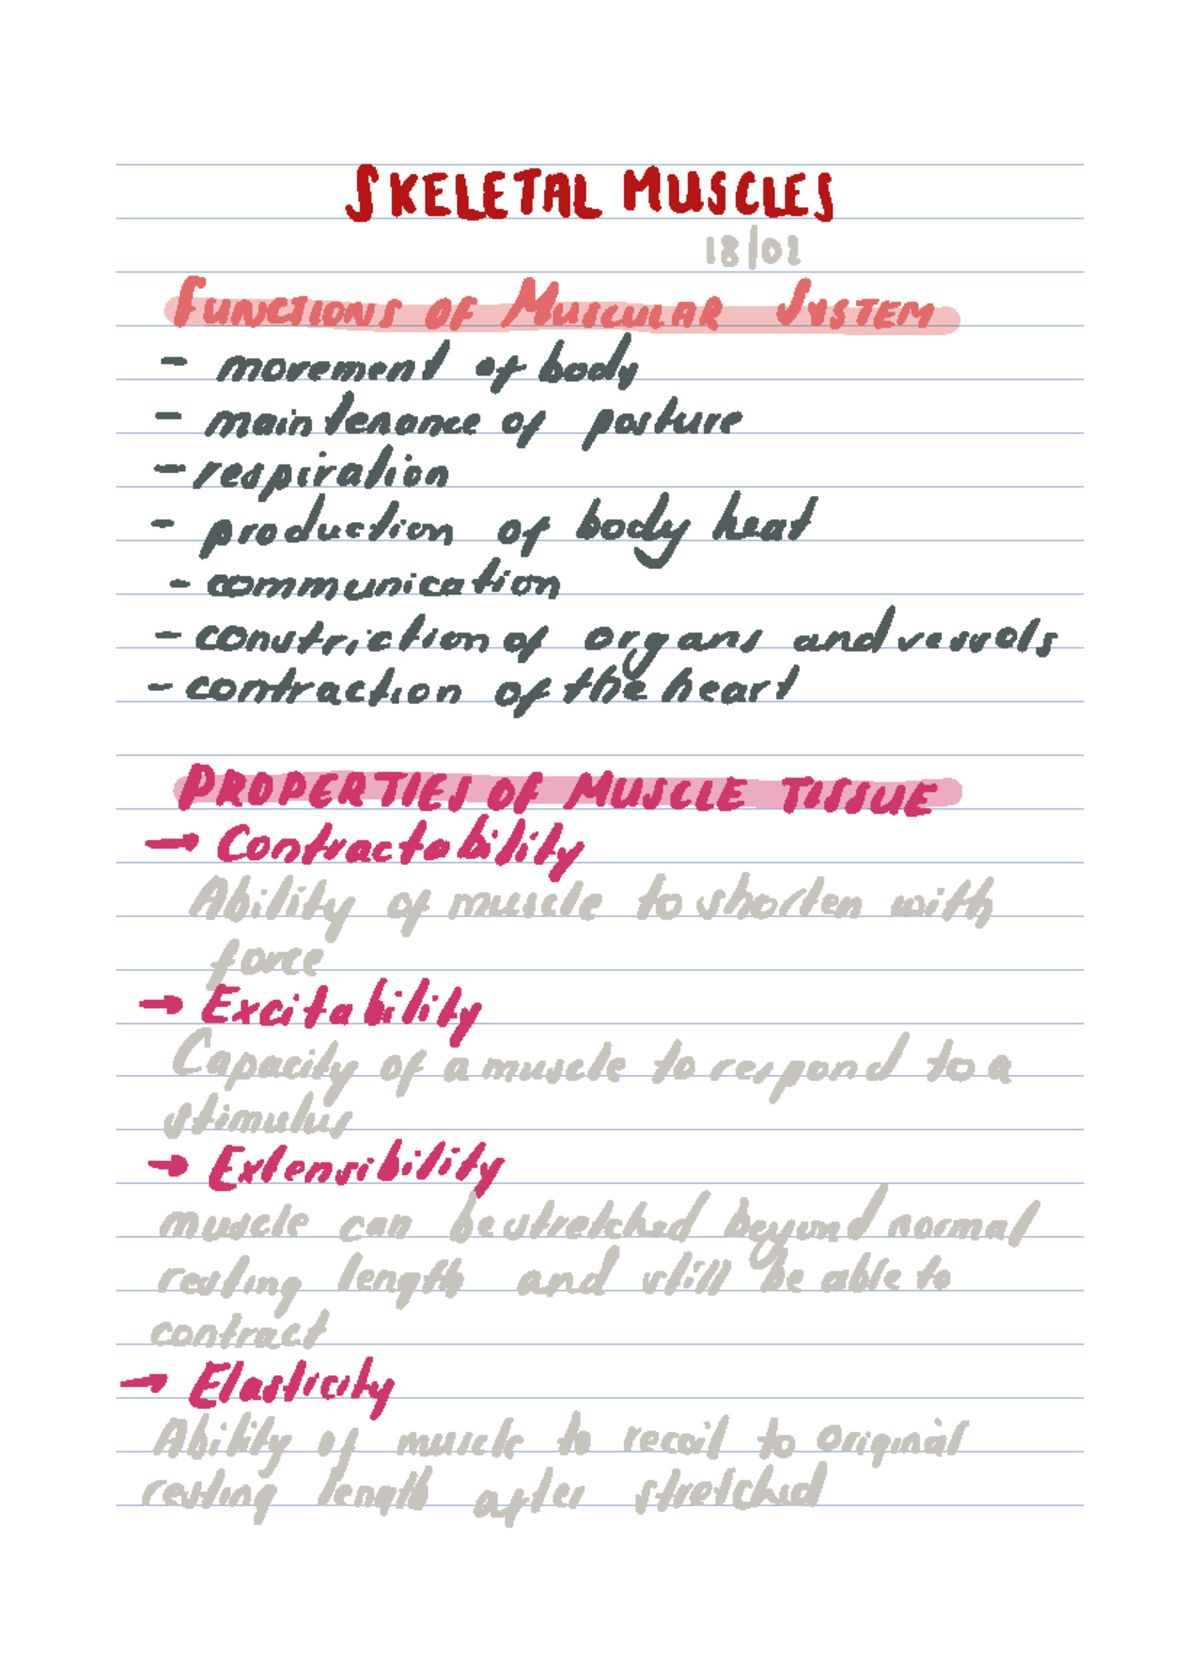 SKELETAL MUSCLES
18/02
FUNCTIONS OF MUSCULAR SYSTEM
- movement of body
- maintenance of posture
- respiration
- production of body heat
- communication
- constriction of organs and vessels
- contraction of the heart
PROPERTIES OF MUSCLE TISSUE
→ Contractability
Ability of muscle to shorten with
force
→ Excitability
Capacity of a muscle to respond to a
stimulus
→ Extensibility
muscle can be stretched beyond normal
resting length and still be able to
contract
→ Elasticity
Ability of muscle to recoil to original
resting length after stretched